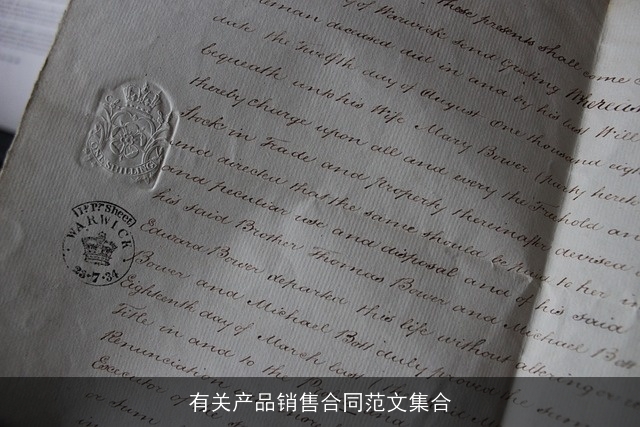 of Warwick send Greeting Whereas
deceased did in and by his last Will
date the Twelfth day of August One thousand eigh
bequeath unto his Wife Mary Bower
thereby charge upon all and every the Freehold an
Stock in Trade and property thereinafter devised
and directed that the same should be paid to her
and peculiar use and disposal and of his said
his said Brother Thomas Bower and Michael Bott
Edward Bower departed this life without altering or
Bower and Michael Bott duly proved the same
Eighteenth day of March last
Title in and to the
Renunciation
Executor of the said
or sum
ONE SHILLING
11 Pr Sheet
WARWICK
25·7·34
有关产品销售合同范文集合